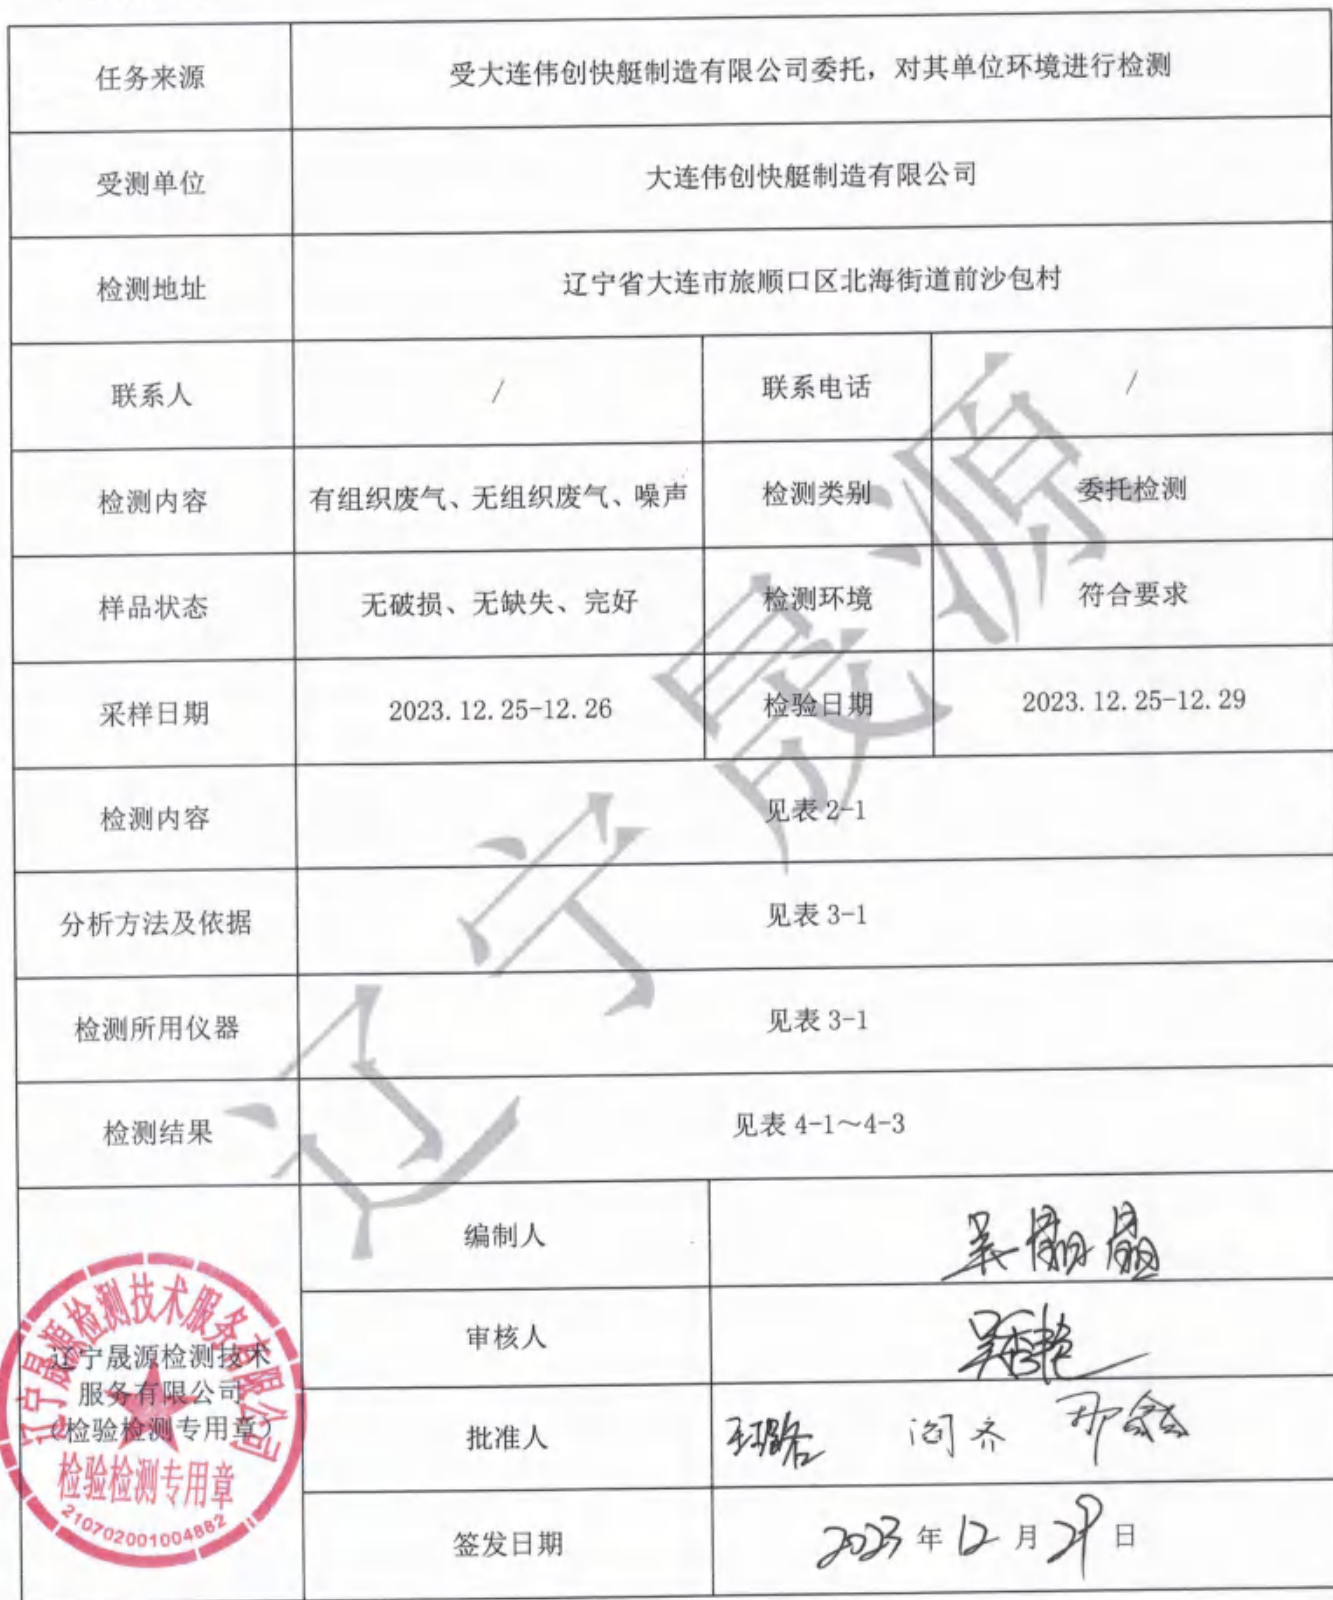 任务来源 受大连伟创快艇制造有限公司委托，对其单位环境进行检测
受测单位 大连伟创快艇制造有限公司
检测地址 辽宁省大连市旅顺口区北海街道前沙包村
联系人 / 联系电话 /
检测内容 有组织废气、无组织废气、噪声 检测类别 委托检测
样品状态 无破损、无缺失、完好 检测环境 符合要求
采样日期 2023.12.25-12.26 检验日期 2023.12.25-12.29
检测内容 见表 2-1
分析方法及依据 见表 3-1
检测所用仪器 见表 3-1
检测结果 见表 4-1～4-3
编制人
审核人
批准人
签发日期 2023 年 12 月 29 日
辽宁晟源检测技术
服务有限公司
（检验检测专用章）
辽宁晟源检测技术服务有限公司
检验检测专用章
210702001004882
辽宁晟源